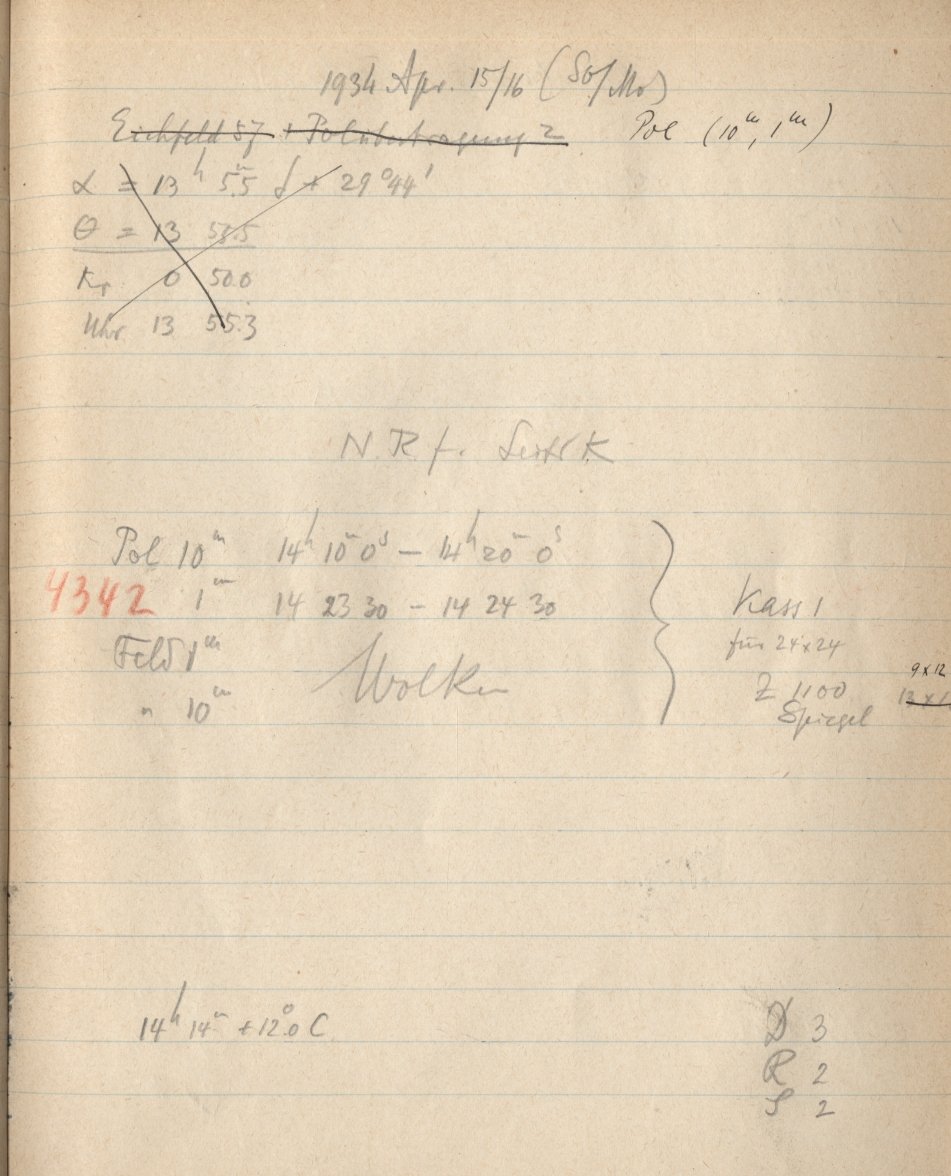 1934 Apr. 15/16 (So/Mo)
Eichfeld 57 + Polübertragung 2 Pol (10ᵐ, 1ᵐ)
α = 13ʰ 5.5ᵐ δ + 29°44'
θ = 13 55.5
Kr 0 50.0
Uhr 13 55.3
N. R. f.
Pol 10ᵐ 14ʰ 10ᵐ 0ˢ – 14ʰ 20ᵐ 0ˢ
4342 1ᵐ 14 23 30 – 14 24 30
Feld 1ᵐ Wolken
" 10ᵐ
Kass 1
für 24x24
9x12
Z 1100
Spiegel
14ʰ 14ᵐ +12.0° C
D 3
R 2
S 2